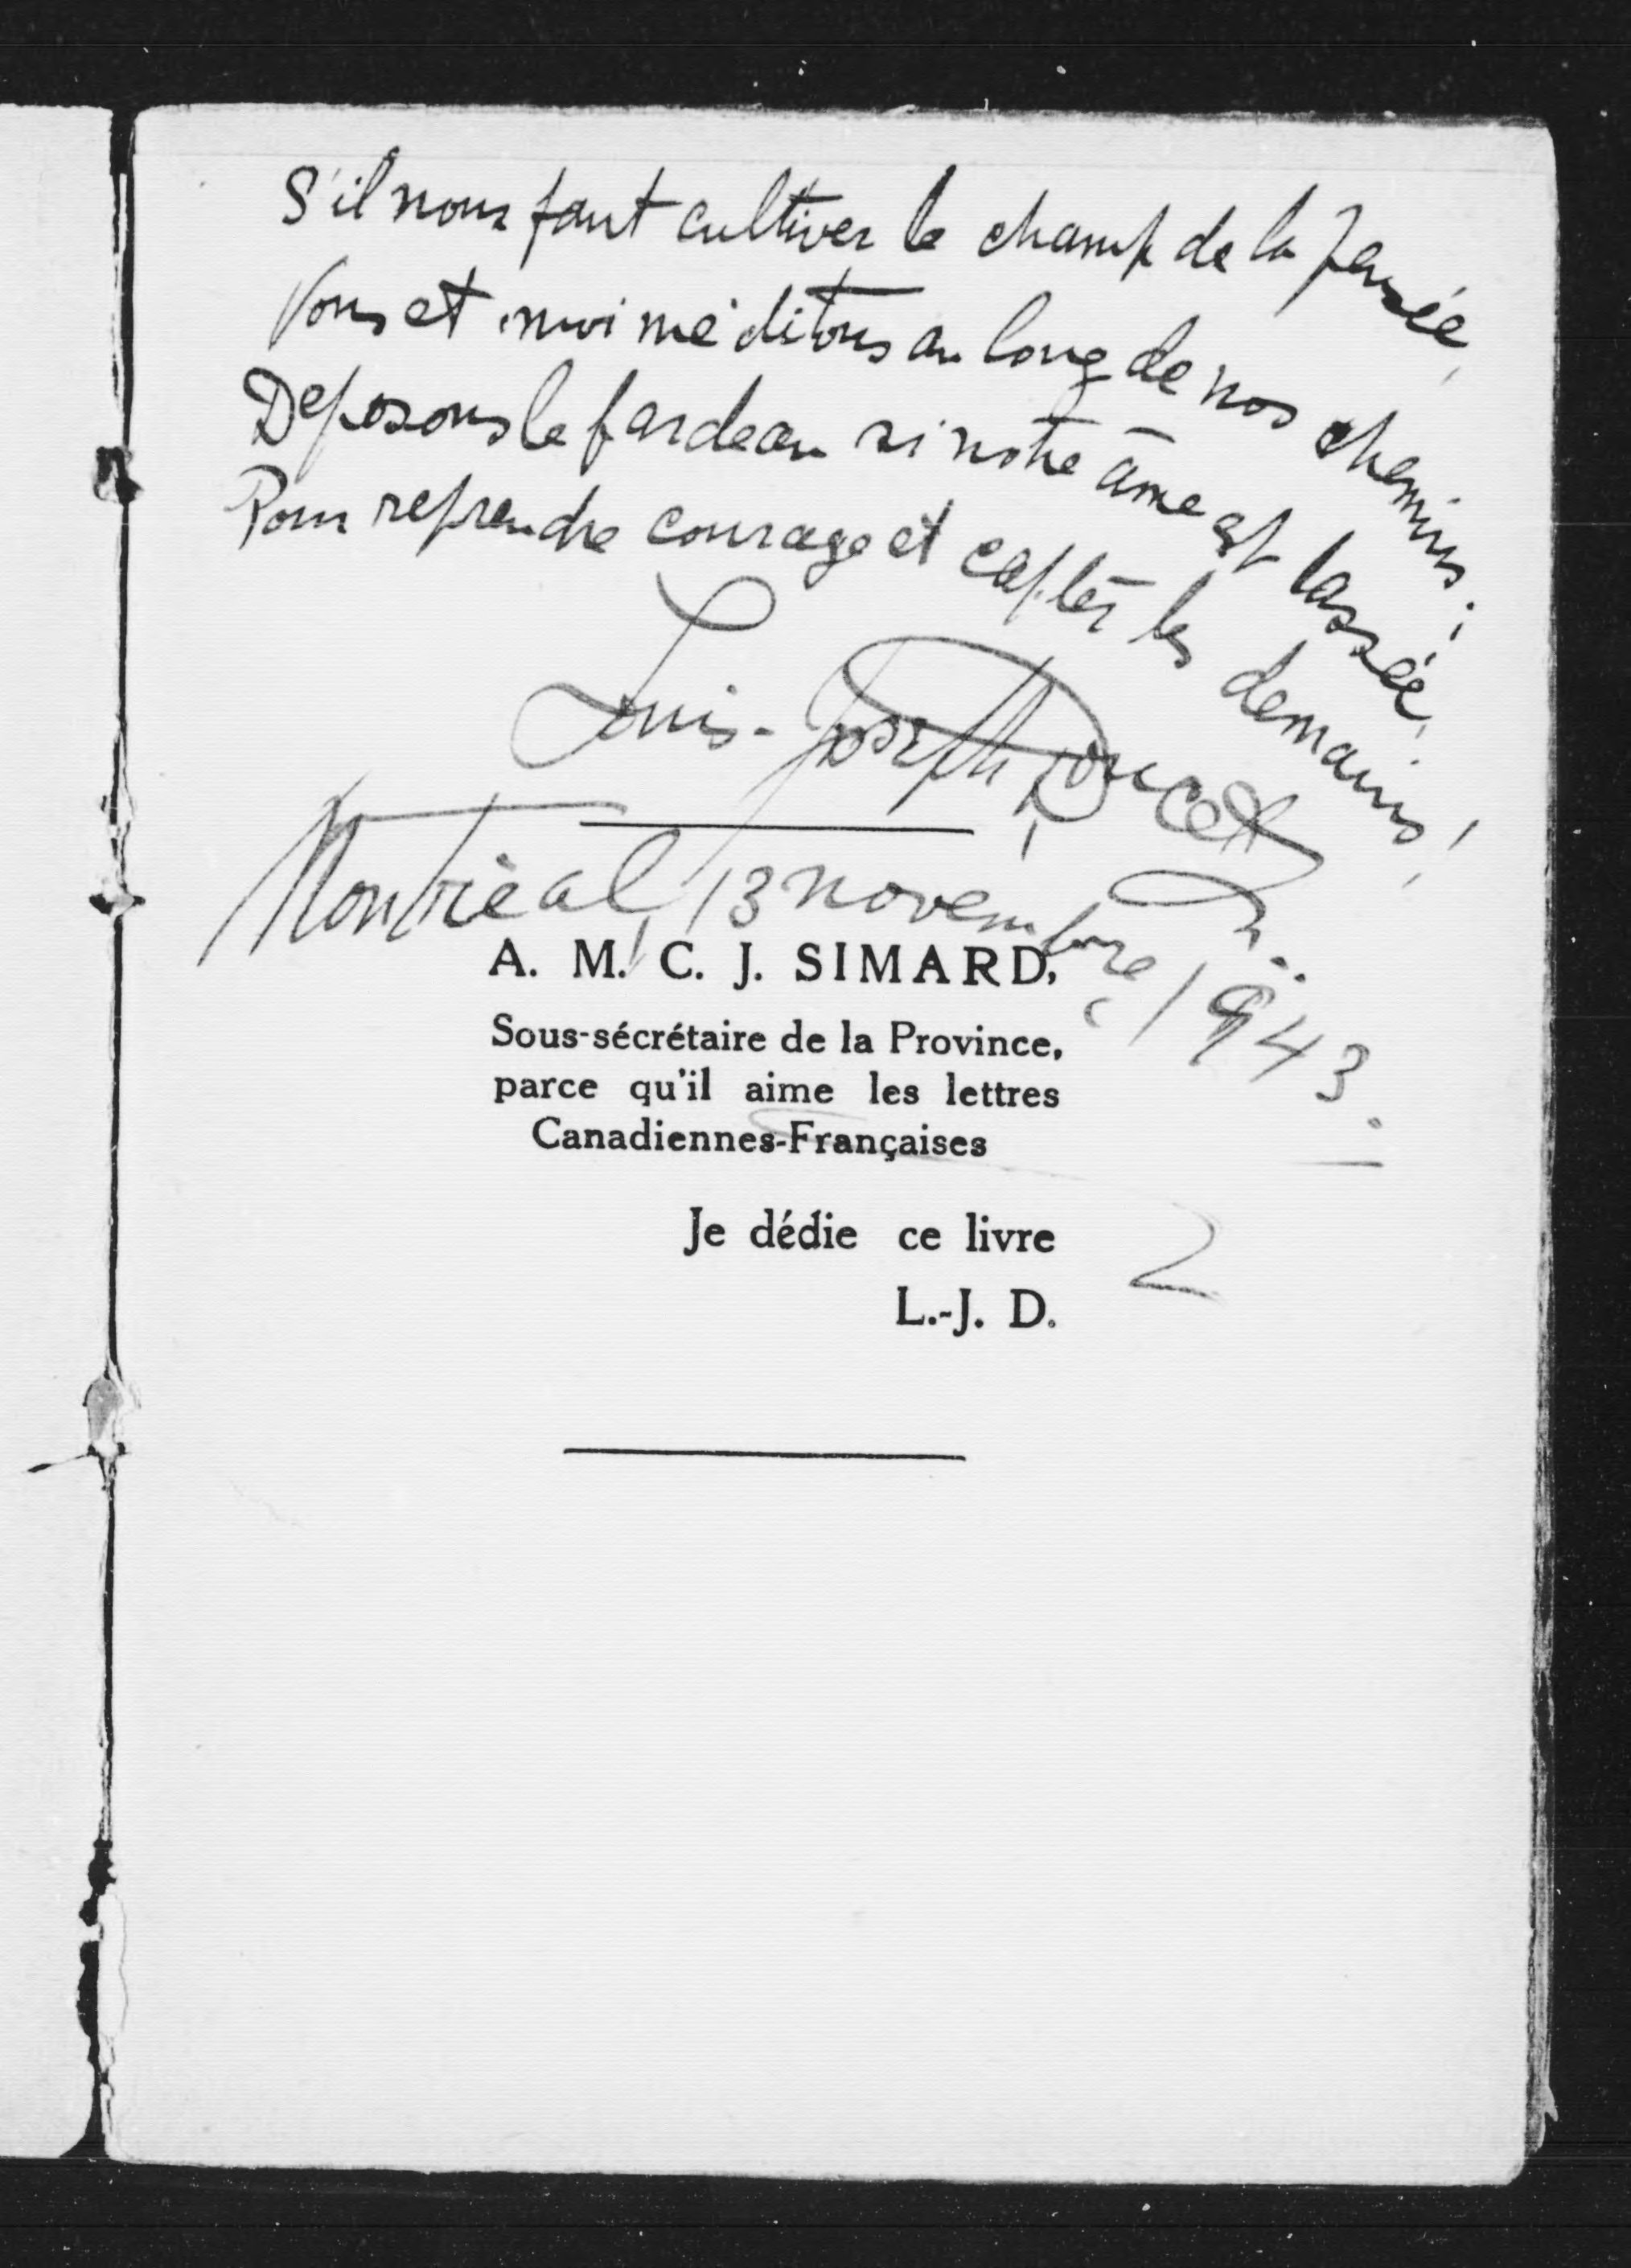 S'il nous faut cultiver le champ de la pensée,
Vous et moi méditons au long de nos chemins;
Déposons le fardeau si notre âme est lassée,
Pour reprendre courage et capter les demains!
Louis-Joseph Doucet
Montréal, 13 novembre 1943.
A. M. C. J. SIMARD,
Sous-sécrétaire de la Province,
parce qu'il aime les lettres
Canadiennes-Françaises
Je dédie ce livre
L.-J. D.